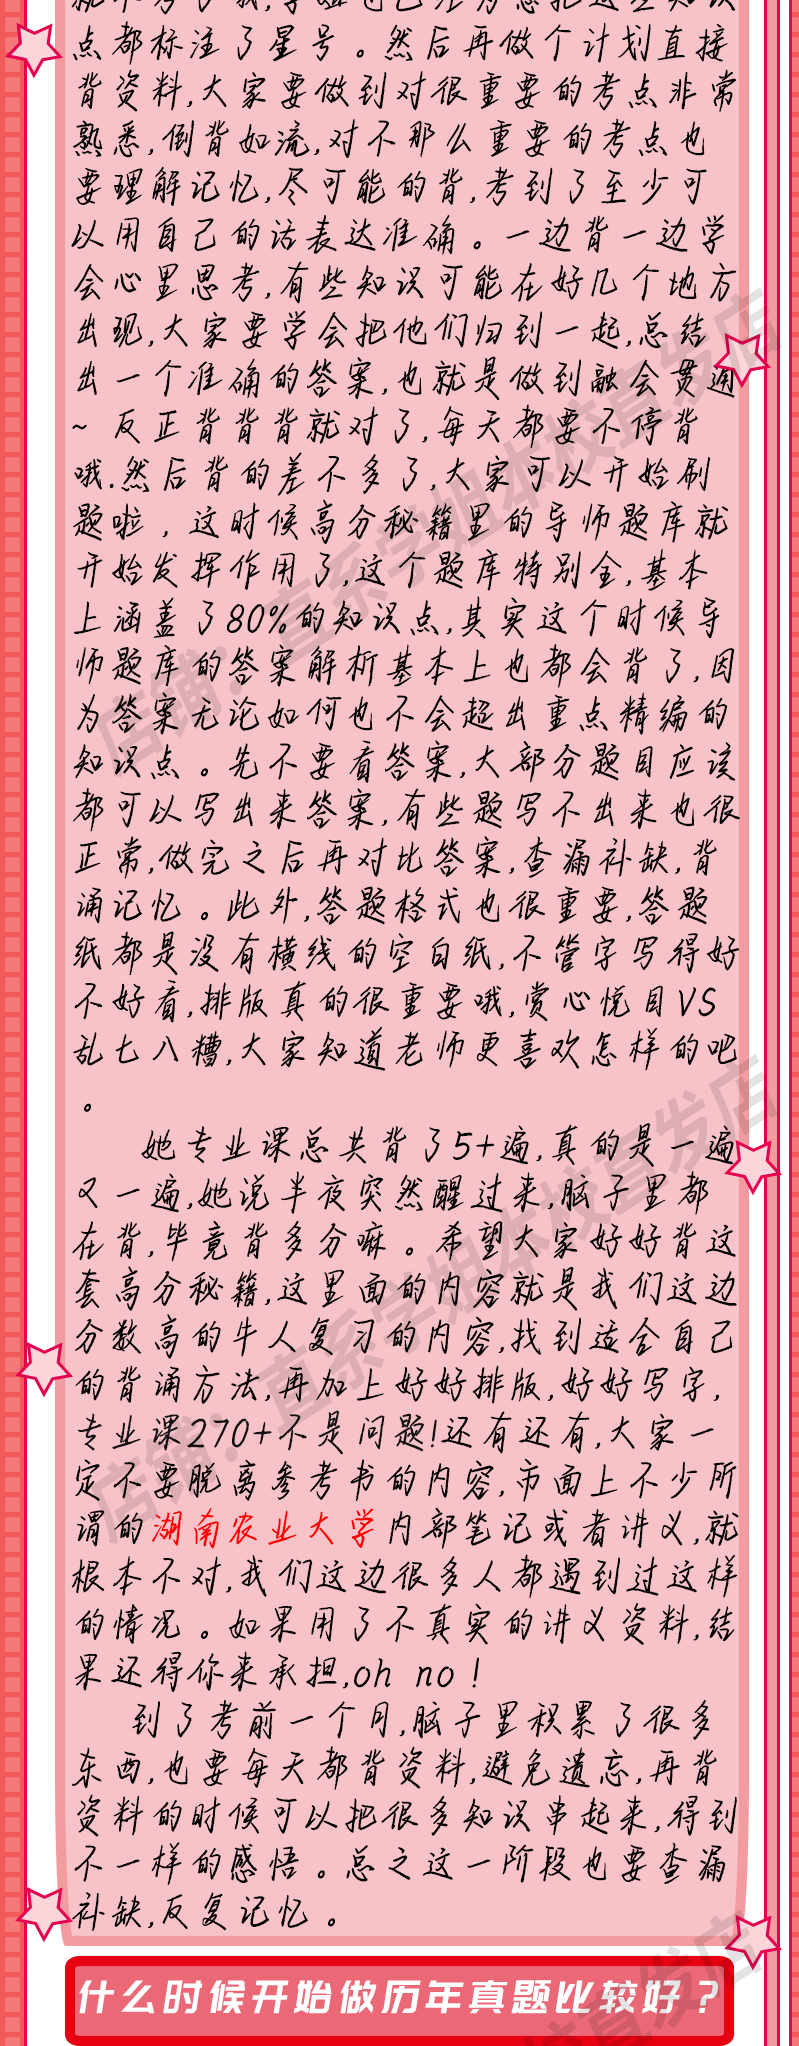 点都标注了星号。然后再做个计划直接
背资料,大家要做到对很重要的考点非常
熟悉,倒背如流,对不那么重要的考点也
要理解记忆,尽可能的背,考到了至少可
以用自己的话表达准确。一边背一边学
会心里思考,有些知识可能在好几个地方
出现,大家要学会把他们归到一起,总结
出一个准确的答案,也就是做到融会贯通
~反正背背背就对了,每天都要不停背
哦.然后背的差不多了,大家可以开始刷
题啦，这时候高分秘籍里的导师题库就
开始发挥作用了,这个题库特别全,基本
上涵盖了80%的知识点,其实这个时候导
师题库的答案解析基本上也都会背了,因
为答案无论如何也不会超出重点精编的
知识点。先不要看答案,大部分题目应该
都可以写出来答案,有些题写不出来也很
正常,做完之后再对比答案,查漏补缺,背
诵记忆。此外,答题格式也很重要,答题
纸都是没有横线的空白纸,不管字写得好
不好看,排版真的很重要哦,赏心悦目VS
乱七八糟,大家知道老师更喜欢怎样的吧
。
她专业课总共背了5+遍,真的是一遍
又一遍,她说半夜突然醒过来,脑子里都
在背,毕竟背多分嘛。希望大家好好背这
套高分秘籍,这里面的内容就是我们这边
分数高的牛人复习的内容,找到适合自己
的背诵方法,再加上好好排版,好好写字,
专业课270+不是问题!还有还有,大家一
定不要脱离参考书的内容,市面上不少所
谓的湖南农业大学内部笔记或者讲义,就
根本不对,我们这边很多人都遇到过这样
的情况。如果用了不真实的讲义资料,结
果还得你来承担,oh no!
到了考前一个月,脑子里积累了很多
东西,也要每天都背资料,避免遗忘,再背
资料的时候可以把很多知识串起来,得到
不一样的感悟。总之这一阶段也要查漏
补缺,反复记忆。
什么时候开始做历年真题比较好？
店铺：直系学姐本校直发店
店铺：直系学姐本校直发店
校直发店